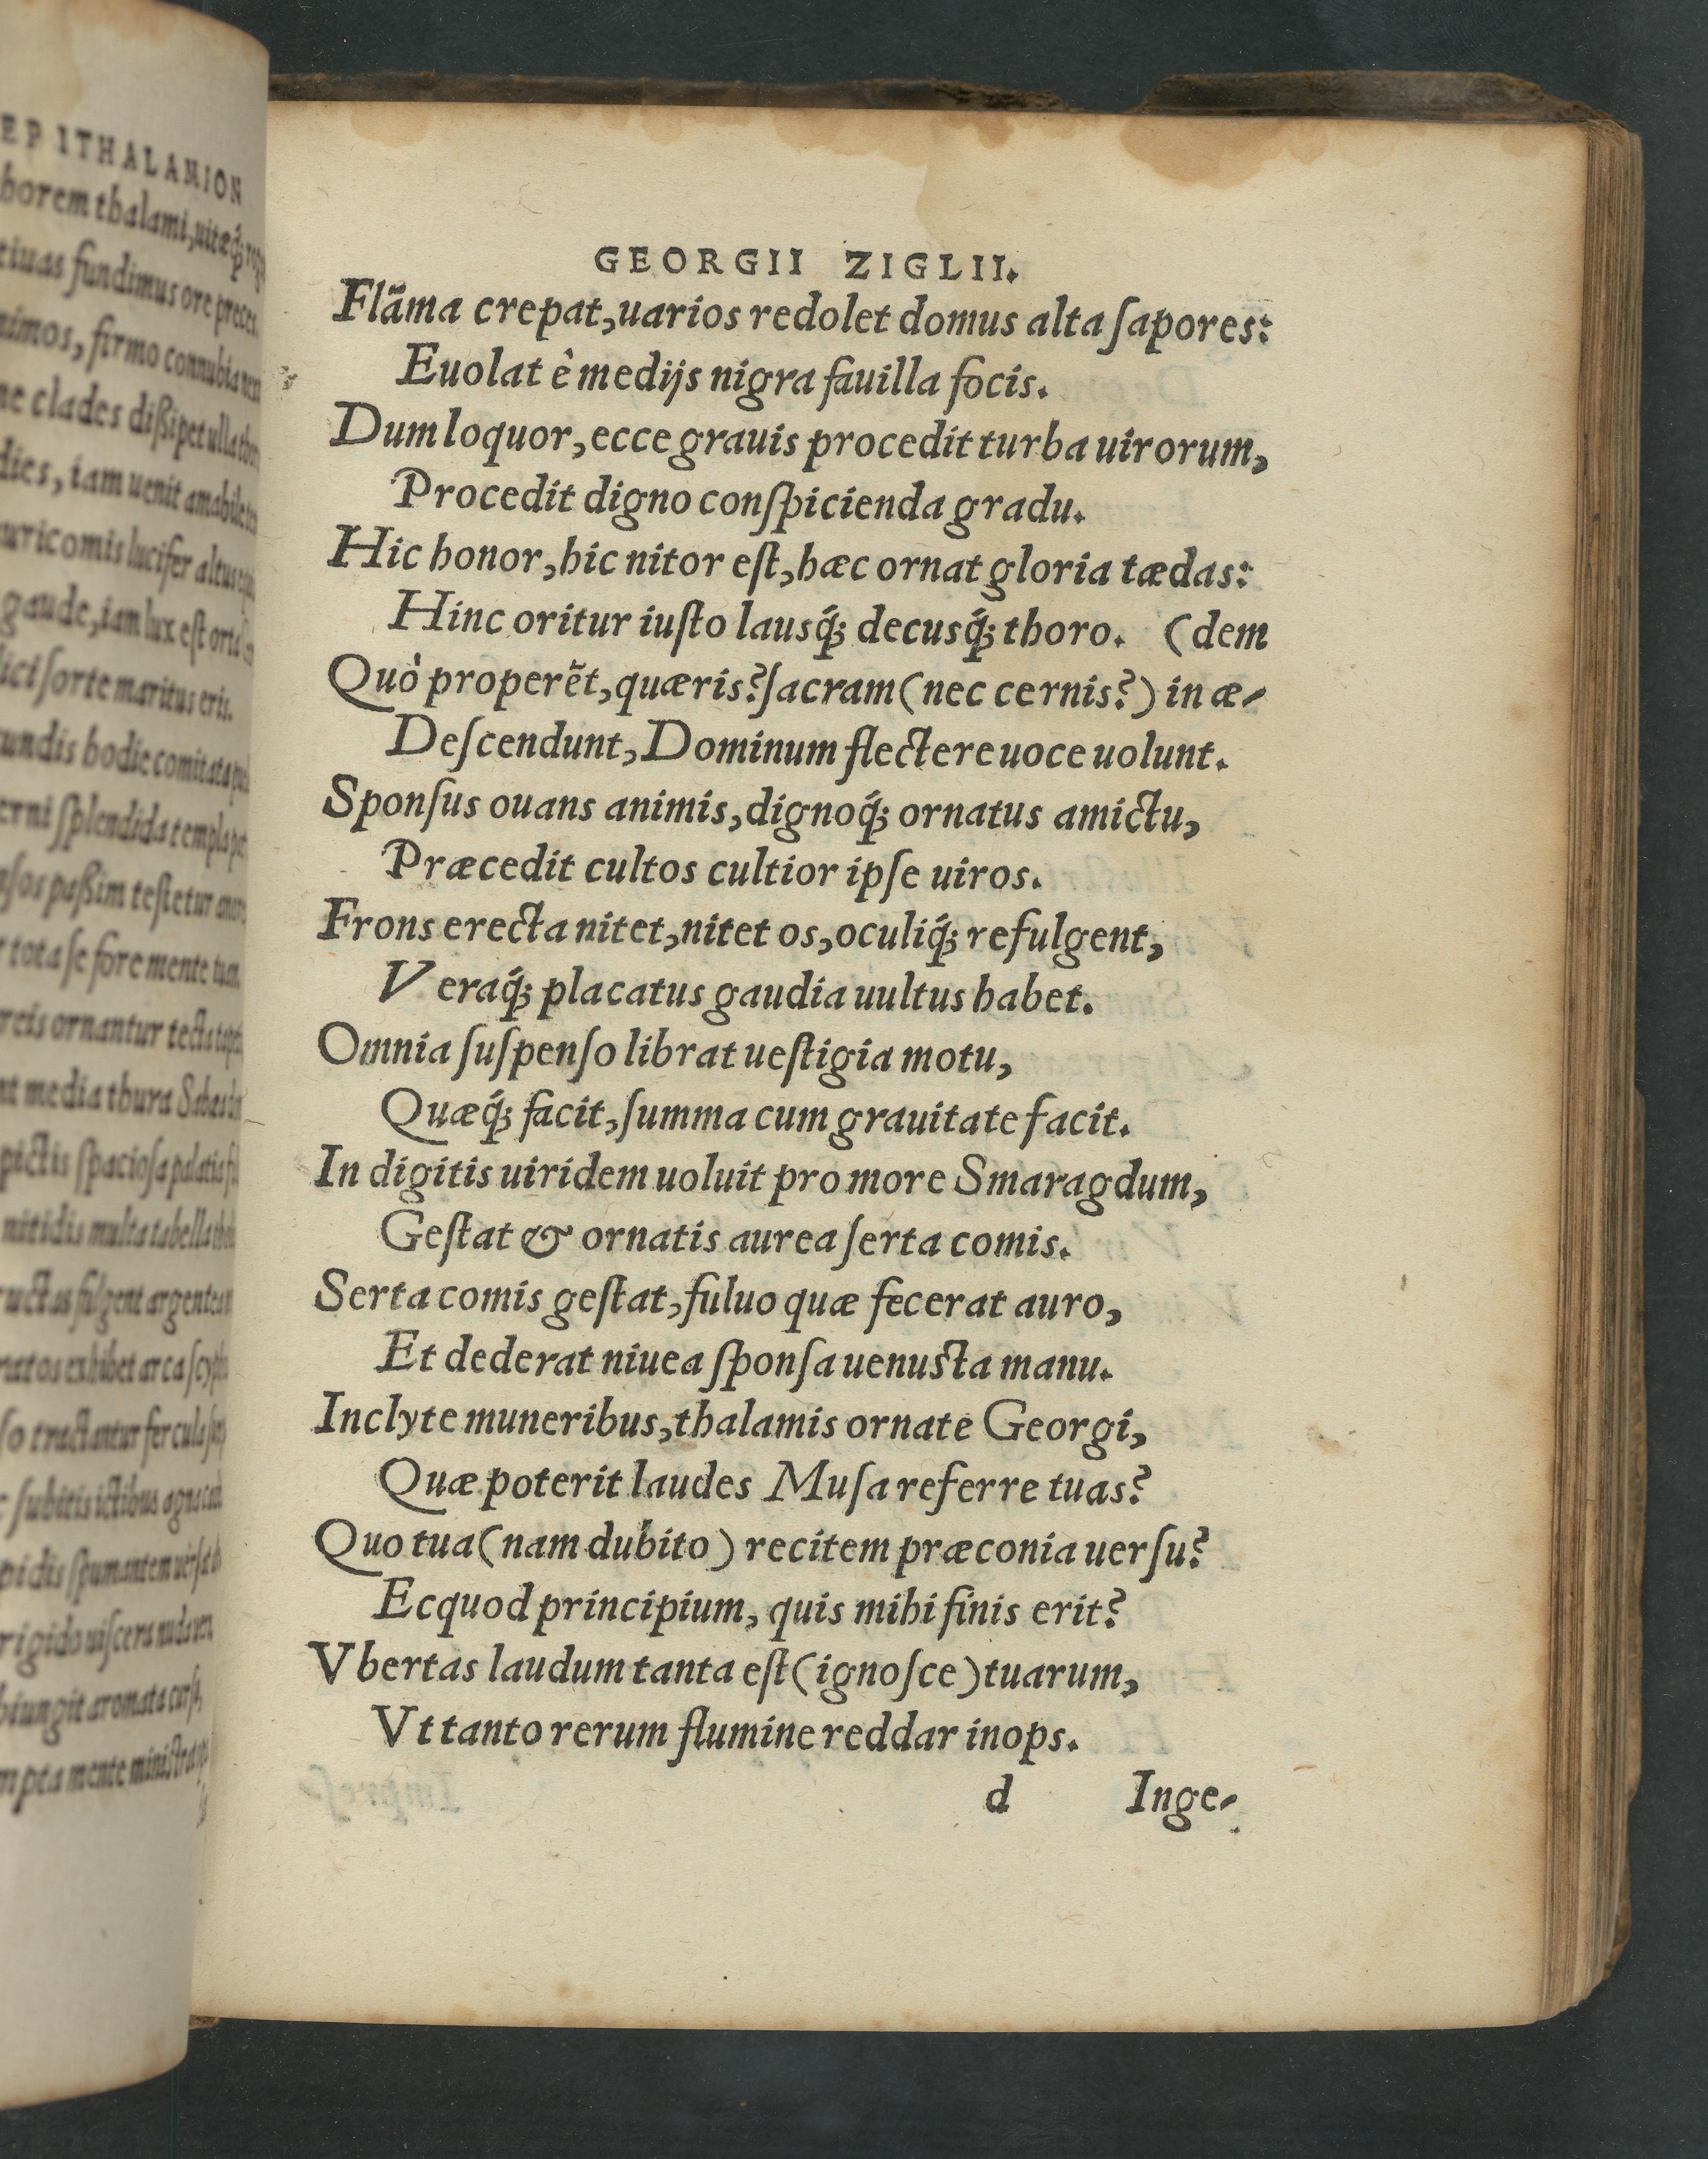 EPITHALAMION
thalami,
fundimus ore preces.
firmo connubia
clades dißipet ulla
dies, iam uenit amabile
lucifer altus
gaude, iam lux est orta
sorte maritus eris.
hodie comitata
splendida templa
paßim testetur
tota se fore mente tuam
ornantur tecta
media thura
pictis spaciosa palatia
nitidis multa tabella
fulgent argentea
exhibet arca
tractantur fercula
subitis ictibus
spumantem
rigido uiscera
aromata
mente
GEORGII ZIGLII.
Flãma crepat, uarios redolet domus alta ſapores:
Euolat è medijs nigra fauilla focis.
Dum loquor, ecce grauis procedit turba uirorum,
Procedit digno conſpicienda gradu.
Hic honor, hic nitor eſt, hæc ornat gloria tædas:
Hinc oritur iuſto lausq́; decusq́; thoro. (dem
Quò properẽt, quæris? ſacram (nec cernis?) in æ-
Deſcendunt, Dominum flectere uoce uolunt.
Sponſus ouans animis, dignoq́; ornatus amictu,
Præcedit cultos cultior ipſe uiros.
Frons erecta nitet, nitet os, oculiq́; refulgent,
Veraq́; placatus gaudia uultus habet.
Omnia ſuſpenſo librat ueſtigia motu,
Quæq́; facit, ſumma cum grauitate facit.
In digitis uiridem uoluit pro more Smaragdum,
Geſtat & ornatis aurea ſerta comis.
Serta comis geſtat, fuluo quæ fecerat auro,
Et dederat niuea ſponſa uenuſta manu.
Inclyte muneribus, thalamis ornate Georgi,
Quæ poterit laudes Muſa referre tuas?
Quo tua (nam dubito) recitem præconia uerſu?
Ecquod principium, quis mihi finis erit?
Vbertas laudum tanta eſt (ignoſce) tuarum,
Vt tanto rerum flumine reddar inops.
d Inge-